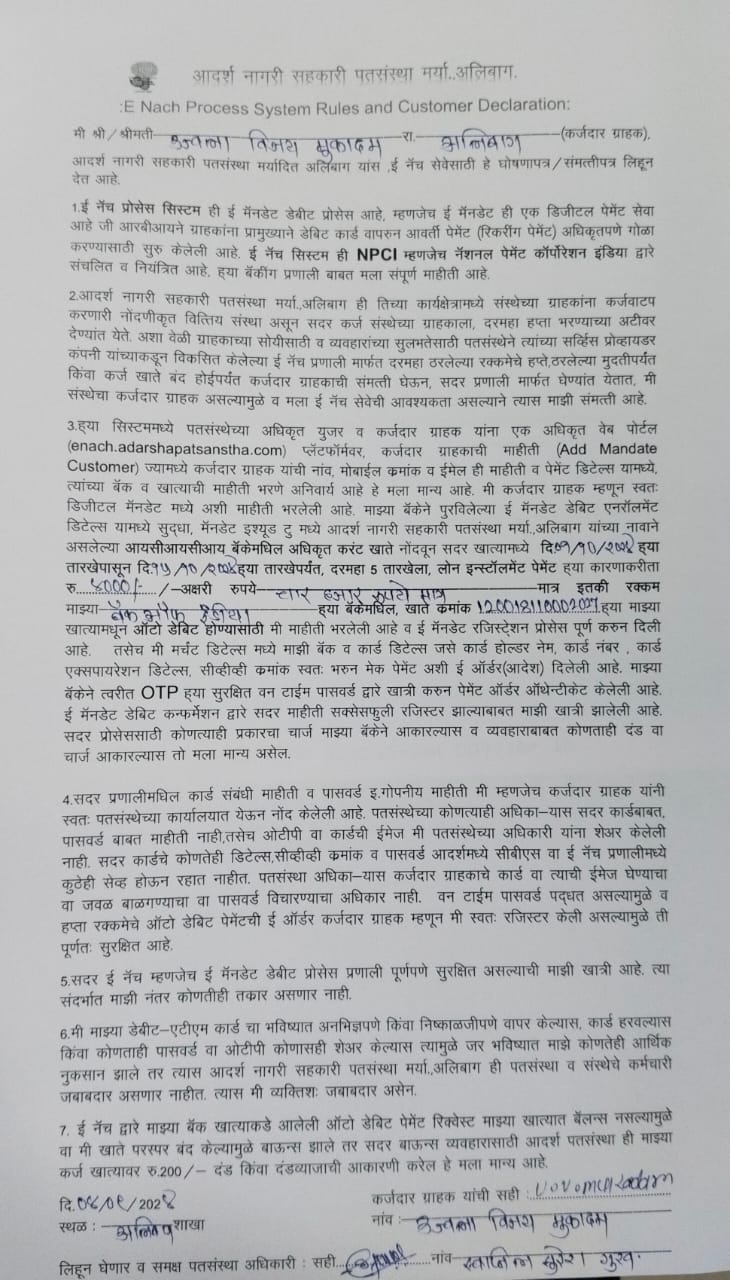 आदर्श नागरी सहकारी पतसंस्था मर्या..अलिबाग.
:E Nach Process System Rules and Customer Declaration:
मी श्री/श्रीमती उज्वला विजय मुकादम रा. अलिबाग (कर्जदार ग्राहक),
आदर्श नागरी सहकारी पतसंस्था मर्यादित अलिबाग यांस ,ई नॅच सेवेसाठी हे घोषणापत्र/संमत्तीपत्र लिहून
देत आहे.
1.ई नॅच प्रोसेस सिस्टिम ही ई मॅनडेट डेबीट प्रोसेस आहे, म्हणजेच ई मॅनडेट ही एक डिजीटल पेमेंट सेवा
आहे जी आरबीआयने ग्राहकांना प्रामुख्याने डेबिट कार्ड वापरुन आवर्ती पेमेंट (रिकरींग पेमेंट) अधिकृतपणे गोळा
करण्यासाठी सुरु केलेली आहे. ई नॅच सिस्टिम ही NPCI म्हणजेच नॅशनल पेमेंट कॉर्पोरेशन इंडिया द्वारे
संचलित व नियंत्रित आहे, ह्या बॅकींग प्रणाली बाबत मला संपूर्ण माहीती आहे.
2.आदर्श नागरी सहकारी पतसंस्था मर्या.,अलिबाग ही तिच्या कार्यक्षेत्रामध्ये संस्थेच्या ग्राहकांना कर्जवाटप
करणारी नोंदणीकृत वित्तिय संस्था असून सदर कर्ज संस्थेच्या ग्राहकाला, दरमहा हप्ता भरण्याच्या अटीवर
देण्यांत येते. अशा वेळी ग्राहकाच्या सोयीसाठी व व्यवहारांच्या सुलभतेसाठी पतसंस्थेने त्यांच्या सर्व्हिस प्रोव्हायडर
कंपनी यांच्याकडून विकसित केलेल्या ई नॅच प्रणाली मार्फत दरमहा ठरलेल्या रक्कमेचे हप्ते,ठरलेल्या मुदतीपर्यंत
किंवा कर्ज खाते बंद होईपर्यंत कर्जदार ग्राहकाची संमत्ती घेऊन, सदर प्रणाली मार्फत घेण्यांत येतात, मी
संस्थेचा कर्जदार ग्राहक असल्यामुळे व मला ई नॅच सेवेची आवश्यकता असल्याने त्यास माझी संमत्ती आहे.
3.ह्या सिस्टममध्ये पतसंस्थेच्या अधिकृत युजर व कर्जदार ग्राहक यांना एक अधिकृत वेब पोर्टल
(enach.adarshapatsanstha.com) प्लॅटफॉर्मवर, कर्जदार ग्राहकाची माहीती (Add Mandate
Customer) ज्यामध्ये कर्जदार ग्राहक यांची नांव, मोबाईल क्रमांक व ईमेल ही माहीती व पेमेंट डिटेल्स यामध्ये,
त्यांच्या बॅक व खात्याची माहीती भरणे अनिवार्य आहे हे मला मान्य आहे. मी कर्जदार ग्राहक म्हणून स्वतः
डिजीटल मॅनडेट मध्ये अशी माहीती भरलेली आहे. माझ्या बॅकेने पुरविलेल्या ई मॅनडेट डेबिट एनरॉलमेंट
डिटेल्स यामध्ये सुद्धा, मॅनडेट इश्यूड टु मध्ये आदर्श नागरी सहकारी पतसंस्था मर्या.,अलिबाग यांच्या नावाने
असलेल्या आयसीआयसीआय बॅकेमधिल अधिकृत करंट खाते नोंदवून सदर खात्यामध्ये दि. /१०/२०२४ ह्या
तारखेपासून दि. /१०/ ह्या तारखेपर्यंत, दरमहा 5 तारखेला, लोन इन्स्टॉलमेंट पेमेंट ह्या कारणाकरीता
रु ४०००/- /-अक्षरी रुपये चार हजार रुपये मात्र मात्र इतकी रक्कम
माझ्या बँक ऑफ इंडीया ह्या बॅकेमधिल, खाते कमांक 120018110002027 ह्या माझ्या
खात्यामधून ऑटो डेबिट होण्यासाठी मी माहीती भरलेली आहे व ई मॅनडेट रजिस्ट्रेशन प्रोसेस पूर्ण करुन दिली
आहे. तसेच मी मर्चंट डिटेल्स मध्ये माझी बॅक व कार्ड डिटेल्स जसे कार्ड होल्डर नेम, कार्ड नंबर , कार्ड
एक्सपायरेशन डिटेल्स, सीव्हीव्ही कमांक स्वतः भरुन मेक पेमेंट अशी ई ऑर्डर(आदेश) दिलेली आहे. माझ्या
बॅकेने त्वरीत OTP ह्या सुरक्षित वन टाईम पासवर्ड द्वारे खात्री करुन पेमेंट ऑर्डर ऑथेन्टीकेट केलेली आहे.
ई मॅनडेट डेबिट कन्फर्मेशन द्वारे सदर माहीती सक्सेसफुली रजिस्टर झाल्याबाबत माझी खात्री झालेली आहे.
सदर प्रोसेससाठी कोणत्याही प्रकारचा चार्ज माझ्या बॅकेने आकारल्यास व व्यवहाराबाबत कोणताही दंड वा
चार्ज आकारल्यास तो मला मान्य असेल.
4.सदर प्रणालीमधिल कार्ड संबंधी माहीती व पासवर्ड इ.गोपनीय माहीती मी म्हणजेच कर्जदार ग्राहक यांनी
स्वतः पतसंस्थेच्या कार्यालयात येऊन नोंद केलेली आहे. पतसंस्थेच्या कोणत्याही अधिका–यास सदर कार्डबाबत,
पासवर्ड बाबत माहीती नाही,तसेच ओटीपी वा कार्डची ईमेज मी पतसंस्थेच्या अधिकारी यांना शेअर केलेली
नाही. सदर कार्डचे कोणतेही डिटेल्स,सीव्हीव्ही क्रमांक व पासवर्ड आदर्शमध्ये सीबीएस वा ई नॅच प्रणालीमध्ये
कुठेही सेव्ह होऊन रहात नाहीत. पतसंस्था अधिका–यास कर्जदार ग्राहकाचे कार्ड वा त्याची ईमेज घेण्याचा
वा जवळ बाळगण्याचा वा पासवर्ड विचारण्याचा अधिकार नाही. वन टाईम पासवर्ड पद्धत असल्यामुळे व
हप्ता रक्कमेचे ऑटो डेबिट पेमेंटची ई ऑर्डर कर्जदार ग्राहक म्हणून मी स्वतः रजिस्टर केली असल्यामुळे ती
पूर्णतः सुरक्षित आहे.
5.सदर ई नॅच म्हणजेच ई मॅनडेट डेबीट प्रोसेस प्रणाली पूर्णपणे सुरक्षित असल्याची माझी खात्री आहे. त्या
संदर्भात माझी नंतर कोणतीही तकार असणार नाही.
6.मी माझ्या डेबीट–एटीएम कार्ड चा भविष्यात अनभिज्ञपणे किंवा निष्काळजीपणे वापर केल्यास, कार्ड हरवल्यास
किंवा कोणताही पासवर्ड वा ओटीपी कोणासही शेअर केल्यास त्यामुळे जर भविष्यात माझे कोणतेही आर्थिक
नुकसान झाले तर त्यास आदर्श नागरी सहकारी पतसंस्था मर्या.,अलिबाग ही पतसंस्था व संस्थेचे कर्मचारी
जबाबदार असणार नाहीत. त्यास मी व्यक्तिशः जबाबदार असेन.
7. ई नॅच द्वारे माझ्या बॅक खात्याकडे आलेली ऑटो डेबिट पेमेंट रिक्वेस्ट माझ्या खात्यात बॅलन्स नसल्यामुळे
वा मी खाते परस्पर बंद केल्यामुळे बाऊन्स झाले तर सदर बाऊन्स व्यवहारासाठी आदर्श पतसंस्था ही माझ्या
कर्ज खात्यावर रु.200/– दंड किंवा दंडव्याजाची आकारणी करेल हे मला मान्य आहे.
दि. /2024 कर्जदार ग्राहक यांची सही :
स्थळ : अलिबाग शाखा नांव : उज्वला विजय मुकादम
लिहून घेणार व समक्ष पतसंस्था अधिकारी : सही नांव स्वप्निल सुरेश गुरव.